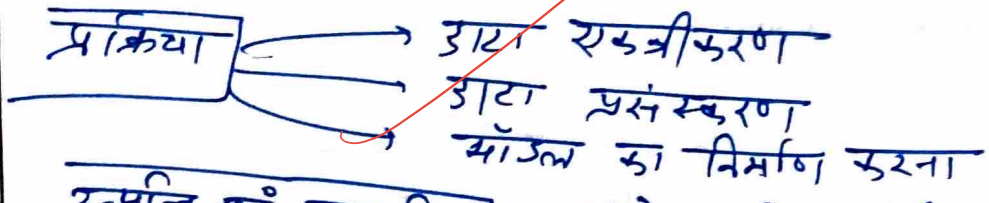 प्रक्रिया
डाटा एकत्रीकरण
डाटा प्रसंस्करण
मॉडल का निर्माण करना